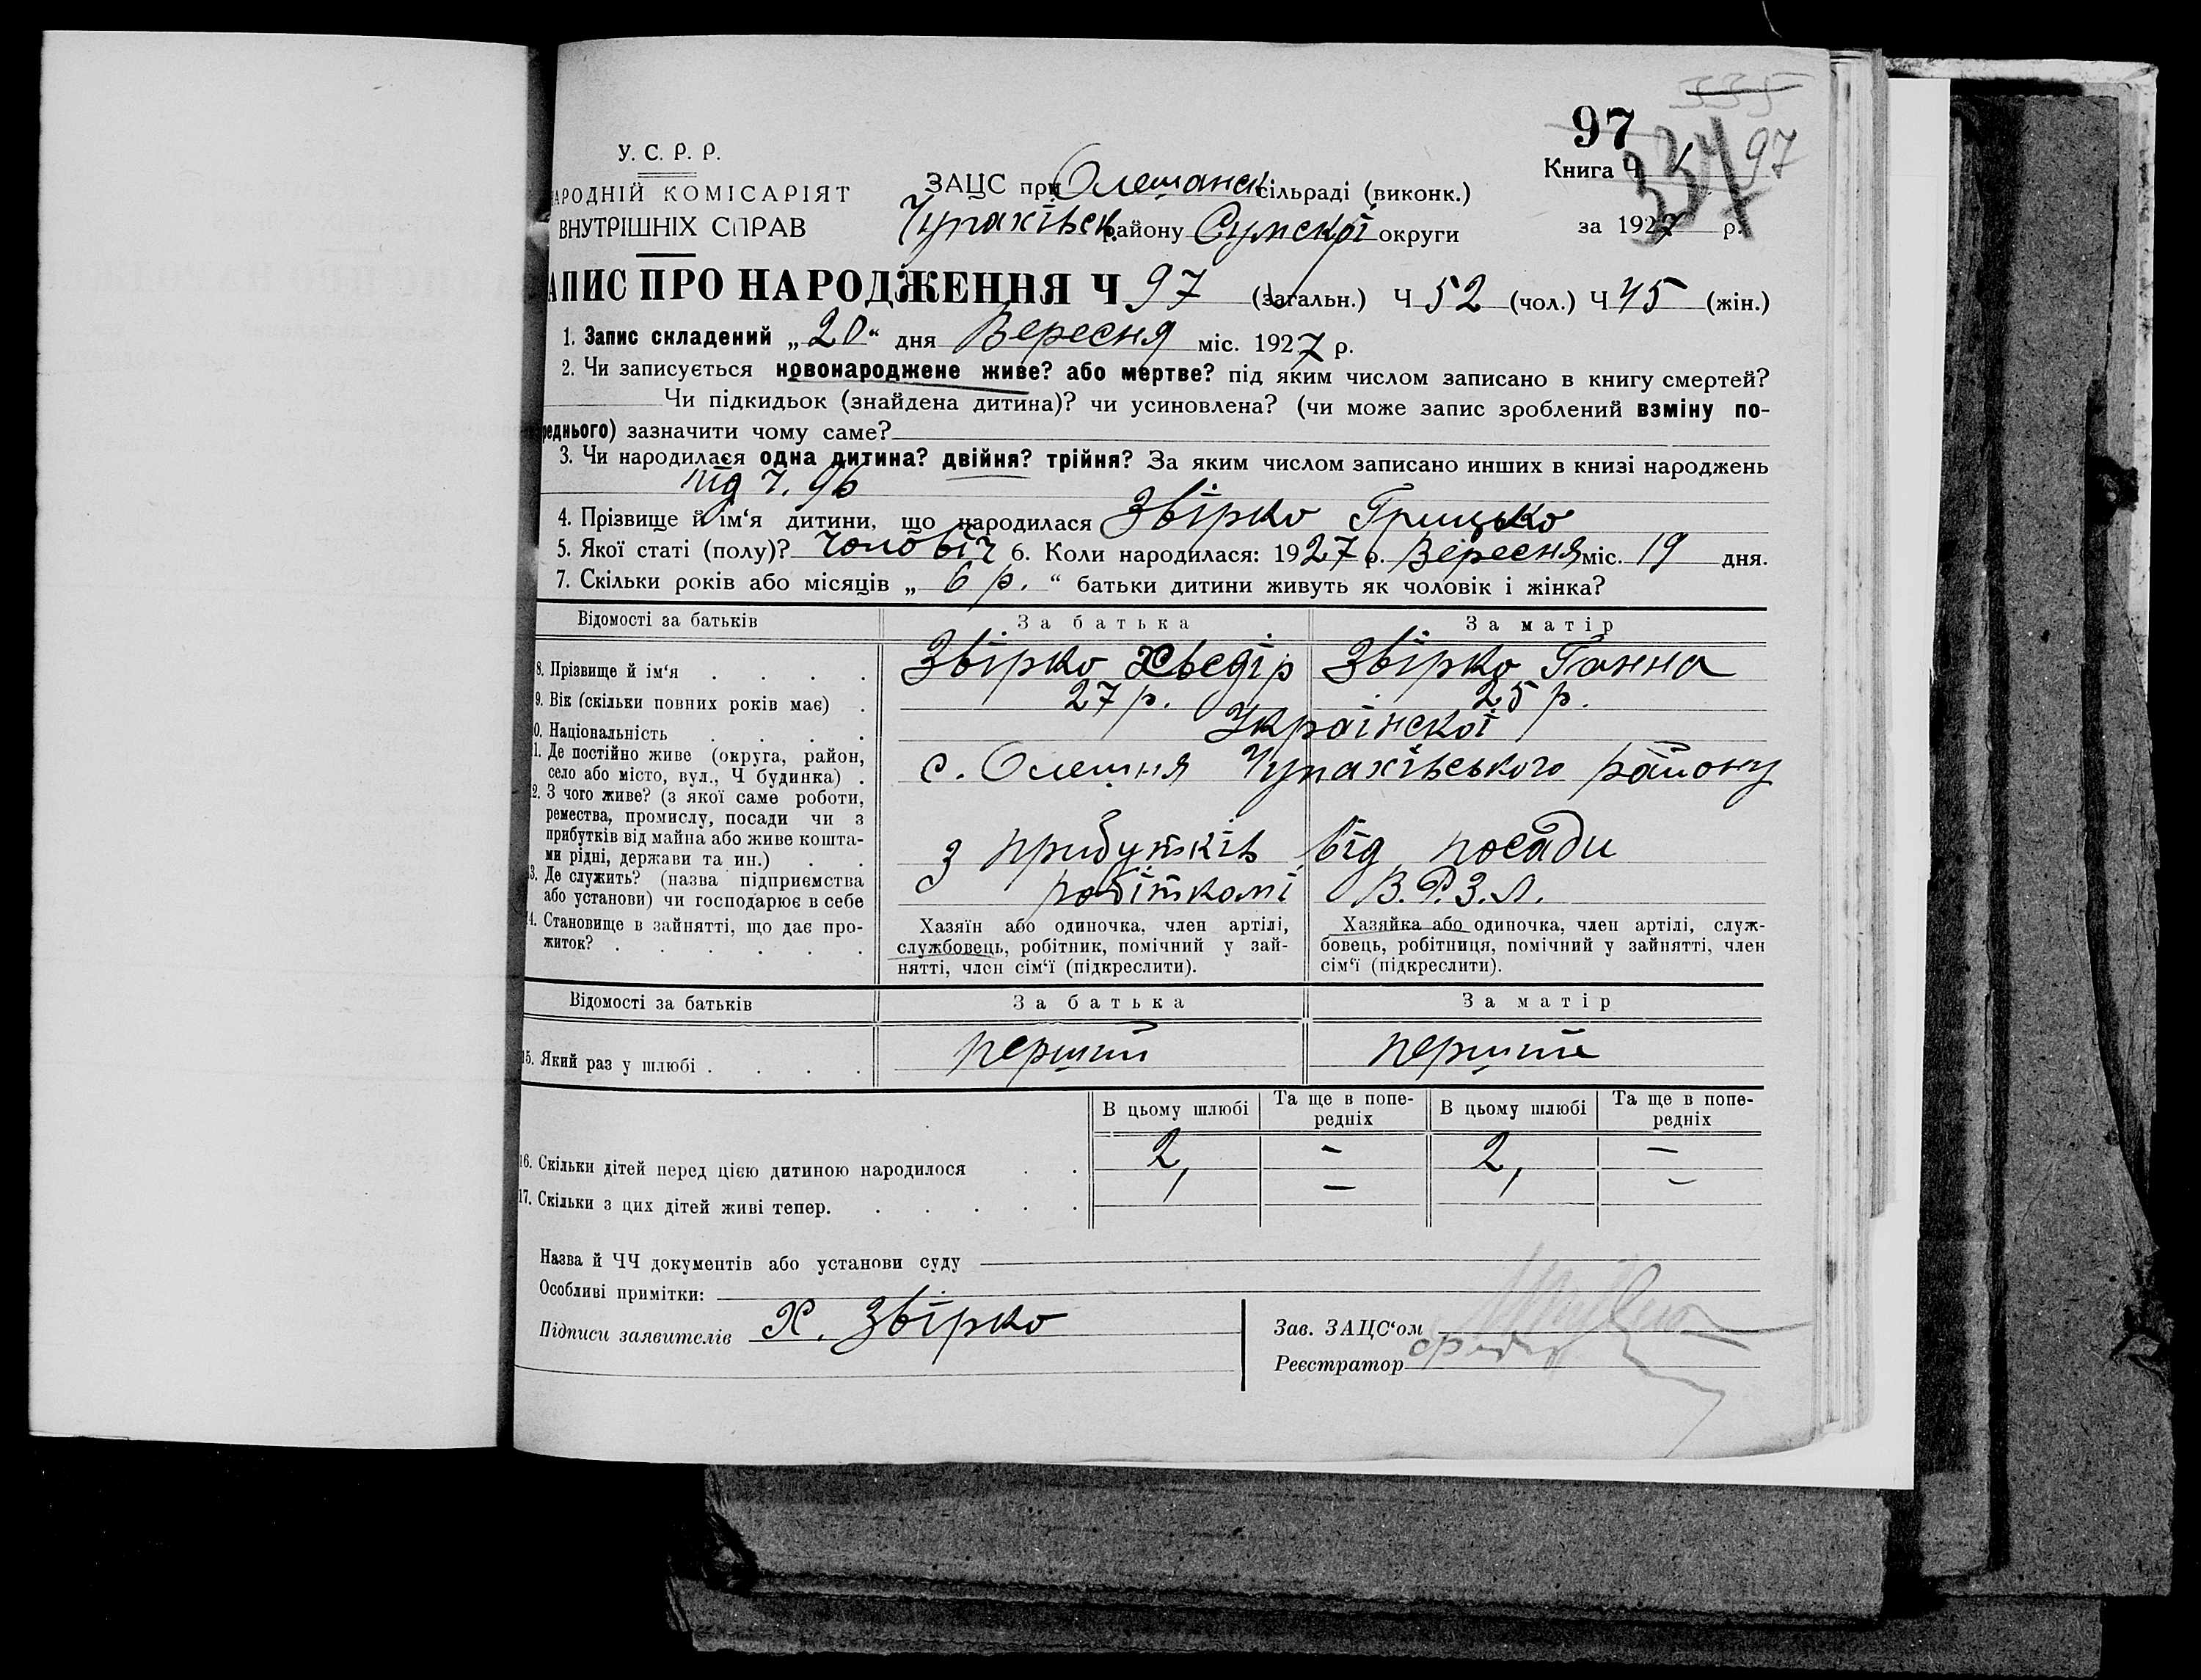 335
97
334
97
У. С. Р. Р.
АРОДНІЙ КОМІСАРІЯТ
ВНУТРІШНІХ СПРАВ
ЗАЦС при Олешанск сільраді (виконк.)
Чупахівськ. району Сумскої округи
Книга Ч
за 1927 р.
АПИС ПРО НАРОДЖЕННЯ Ч 97 (загальн.) Ч 52 (чол.) Ч 45 (жін.)
1. Запис складений „20“ дня Вересня міс. 1927 р.
2. Чи записується новонароджене живе? або мертве? під яким числом записано в книгу смертей?
Чи підкидьок (знайдена дитина)? чи усиновлена? (чи може запис зроблений взміну по-
реднього) зазначити чому саме?
3. Чи народилася одна дитина? двійня? трійня? За яким числом записано инших в книзі народжень
під ч. 96
4. Прізвище й ім‘я дитини, що народилася Звірко Грицько
5. Якої статі (полу)? чоловіч 6. Коли народилася: 1927 р. Вересня міс. 19 дня.
7. Скільки років або місяців „ 6 р. “ батьки дитини живуть як чоловік і жінка?
Відомості за батьків За батька За матір
8. Прізвище й ім‘я . . . . Звірко Хведір Звірко Ганна
9. Вік (скільки повних років має) . 27 р. 25 р.
0. Національність . . . . Украінскоі
1. Де постійно живе (округа, район,
село або місто, вул., Ч будинка) . с. Олешня Чупахівського району
2. З чого живе? (з якої саме роботи,
ремества, промислу, посади чи з
прибутків від майна або живе кошта-
ми рідні, держави та ин.) . . з прибутків від посади
3. Де служить? (назва підприємства
або установи) чи господарює в себе робіткомі В.Р.З.Л.
4. Становище в зайнятті, що дає про-
житок? . . . . . .
Хазяїн або одиночка, член артілі,
службовець, робітник, помічний у зай-
нятті, член сім‘ї (підкреслити).
Хазяйка або одиночка, член артілі, служ-
бовець, робітниця, помічний у зайнятті, член
сім‘ї (підкреслити).
Відомості за батьків За батька За матір
15. Який раз у шлюбі . . . . перший перший
В цьому шлюбі Та ще в попе-
редніх В цьому шлюбі Та ще в попе-
редніх
16. Скільки дітей перед цією дитиною народилося . . 2, – 2, –
17. Скільки з цих дітей живі тепер. . . . . . –  –
Назва й ЧЧ документів або установи суду
Особливі примітки:
Підписи заявителів Х. Звірко
Зав. ЗАЦС‘ом
Реєстратор